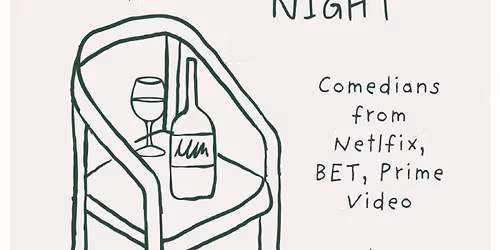 NIGHT
Comedians
from
Netlfix,
BET, Prime
Video